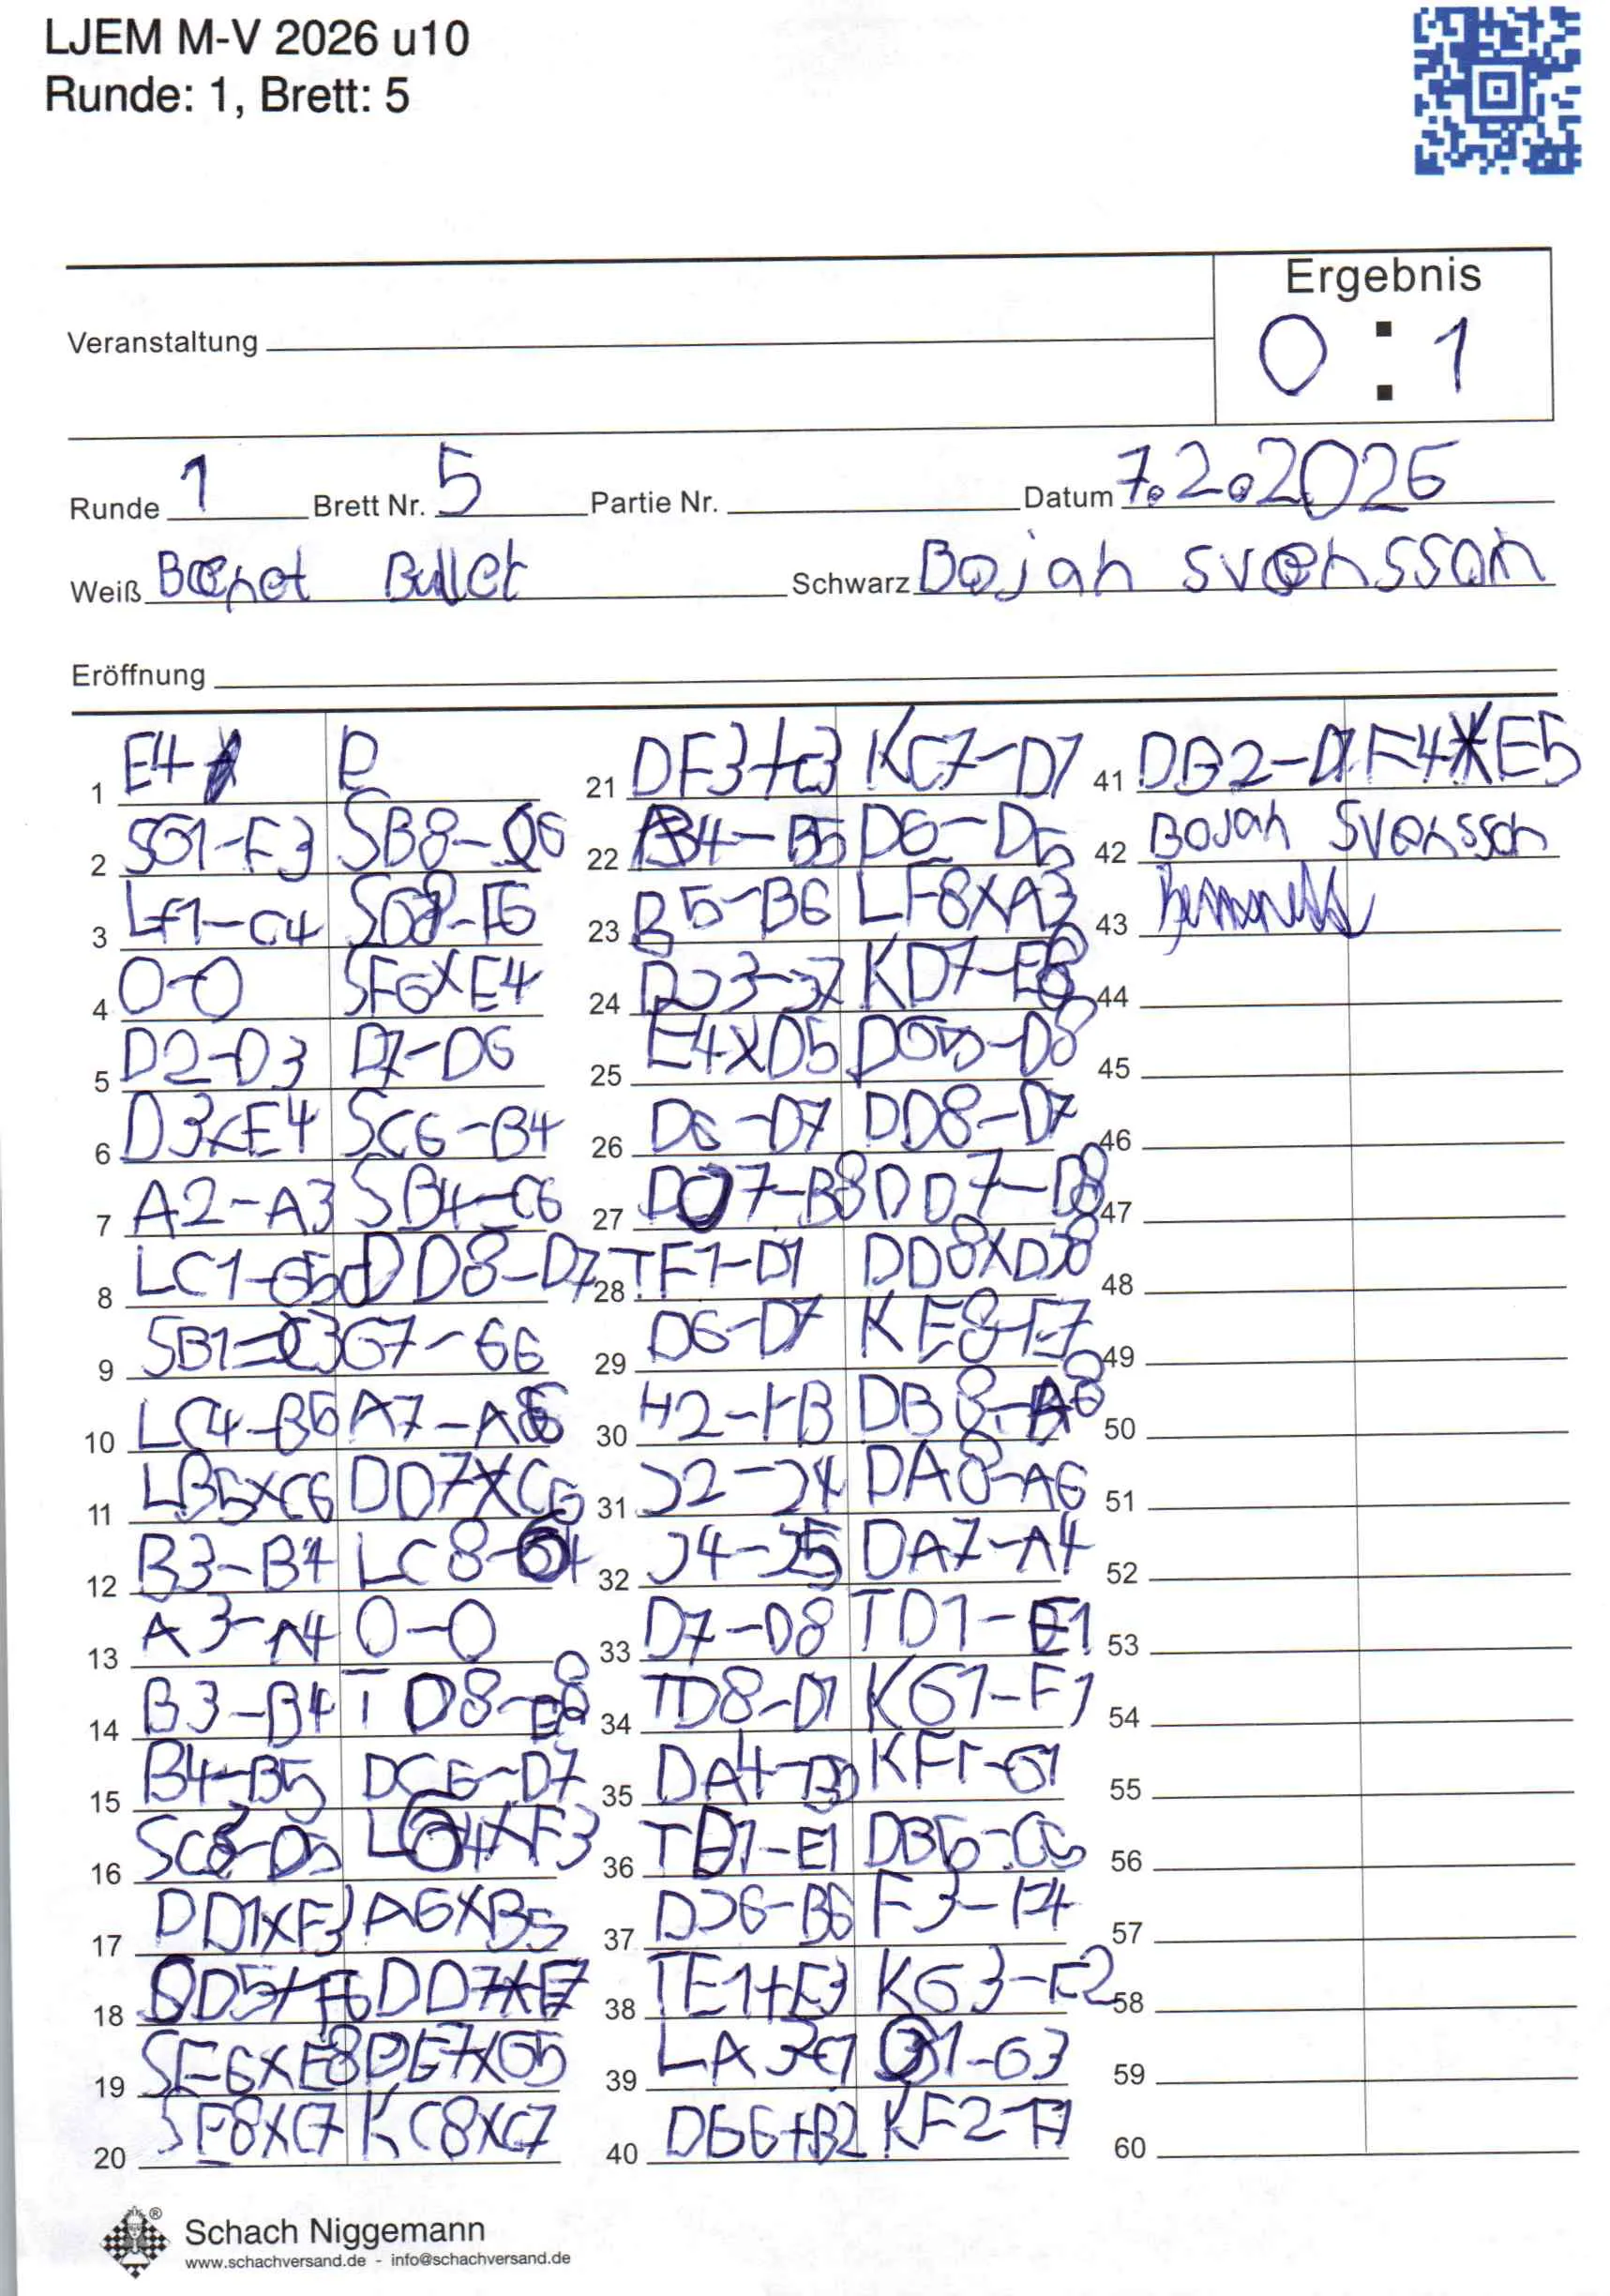 LJEM M-V 2026 u10
Runde: 1, Brett: 5
Ergebnis
Veranstaltung
0 : 1
Runde 1 Brett Nr. 5 Partie Nr. Datum 7.2.2026
Weiß Bullet Schwarz Bojan Svensson
Eröffnung
1 E4 e
2 SG1-F3 SB8-C6
3 Lf1-C4 SG8-F6
4 0-0 SF6XE4
5 D2-D3 D7-D6
6 D3xE4 SC6-B4
7 A2-A3 SB4-C6
8 LC1-G5 DD8-D7
9 SB1-C3 G7-G6
10 LC4-B5 A7-A6
11 LB5xC6 DD7XC6
12 B3-B4 LC8-G4
13 A3-A4 0-0
14 B3-B4 TD8-E8
15 B4-B5 DC6-D7
16 SC3-D5 LG4XF3
17 DD1XF3 A6XB5
18 SD5xF6 DD7XE7
19 SF6XE8 DE7XG5
20 SE8XC7 KC8XC7
21 DF3+c3 KC7-D7
22 B4-B5 D6-D5
23 B5-B6 LF8XA3
24 KD7-E8
25 E4XD5 -D8
26 D6-D7 DD8-D7
27 -B8 DD7-D8
28 TF1-D1 DD8XD8
29 D6-D7 KE8-E7
30 H2-H3 DB8-A8
31 J2-J4 DA8-A6
32 J4-J5 DA7-A4
33 D7-D8 TD1-E1
34 TD8-D1 KG1-F1
35 DA4- KF1-G1
36 TD1-E1 DB5-C6
37 DJ6-B6 F3-F4
38 TE1+E3 KG3-F2
39 LA3-C1 G1-G3
40 DG6+B2 KF2-F1
41 DB2- F4XE5
42 Bojan Svensson
43
44
45
46
47
48
49
50
51
52
53
54
55
56
57
58
59
60
Schach Niggemann
www.schachversand.de - info@schachversand.de